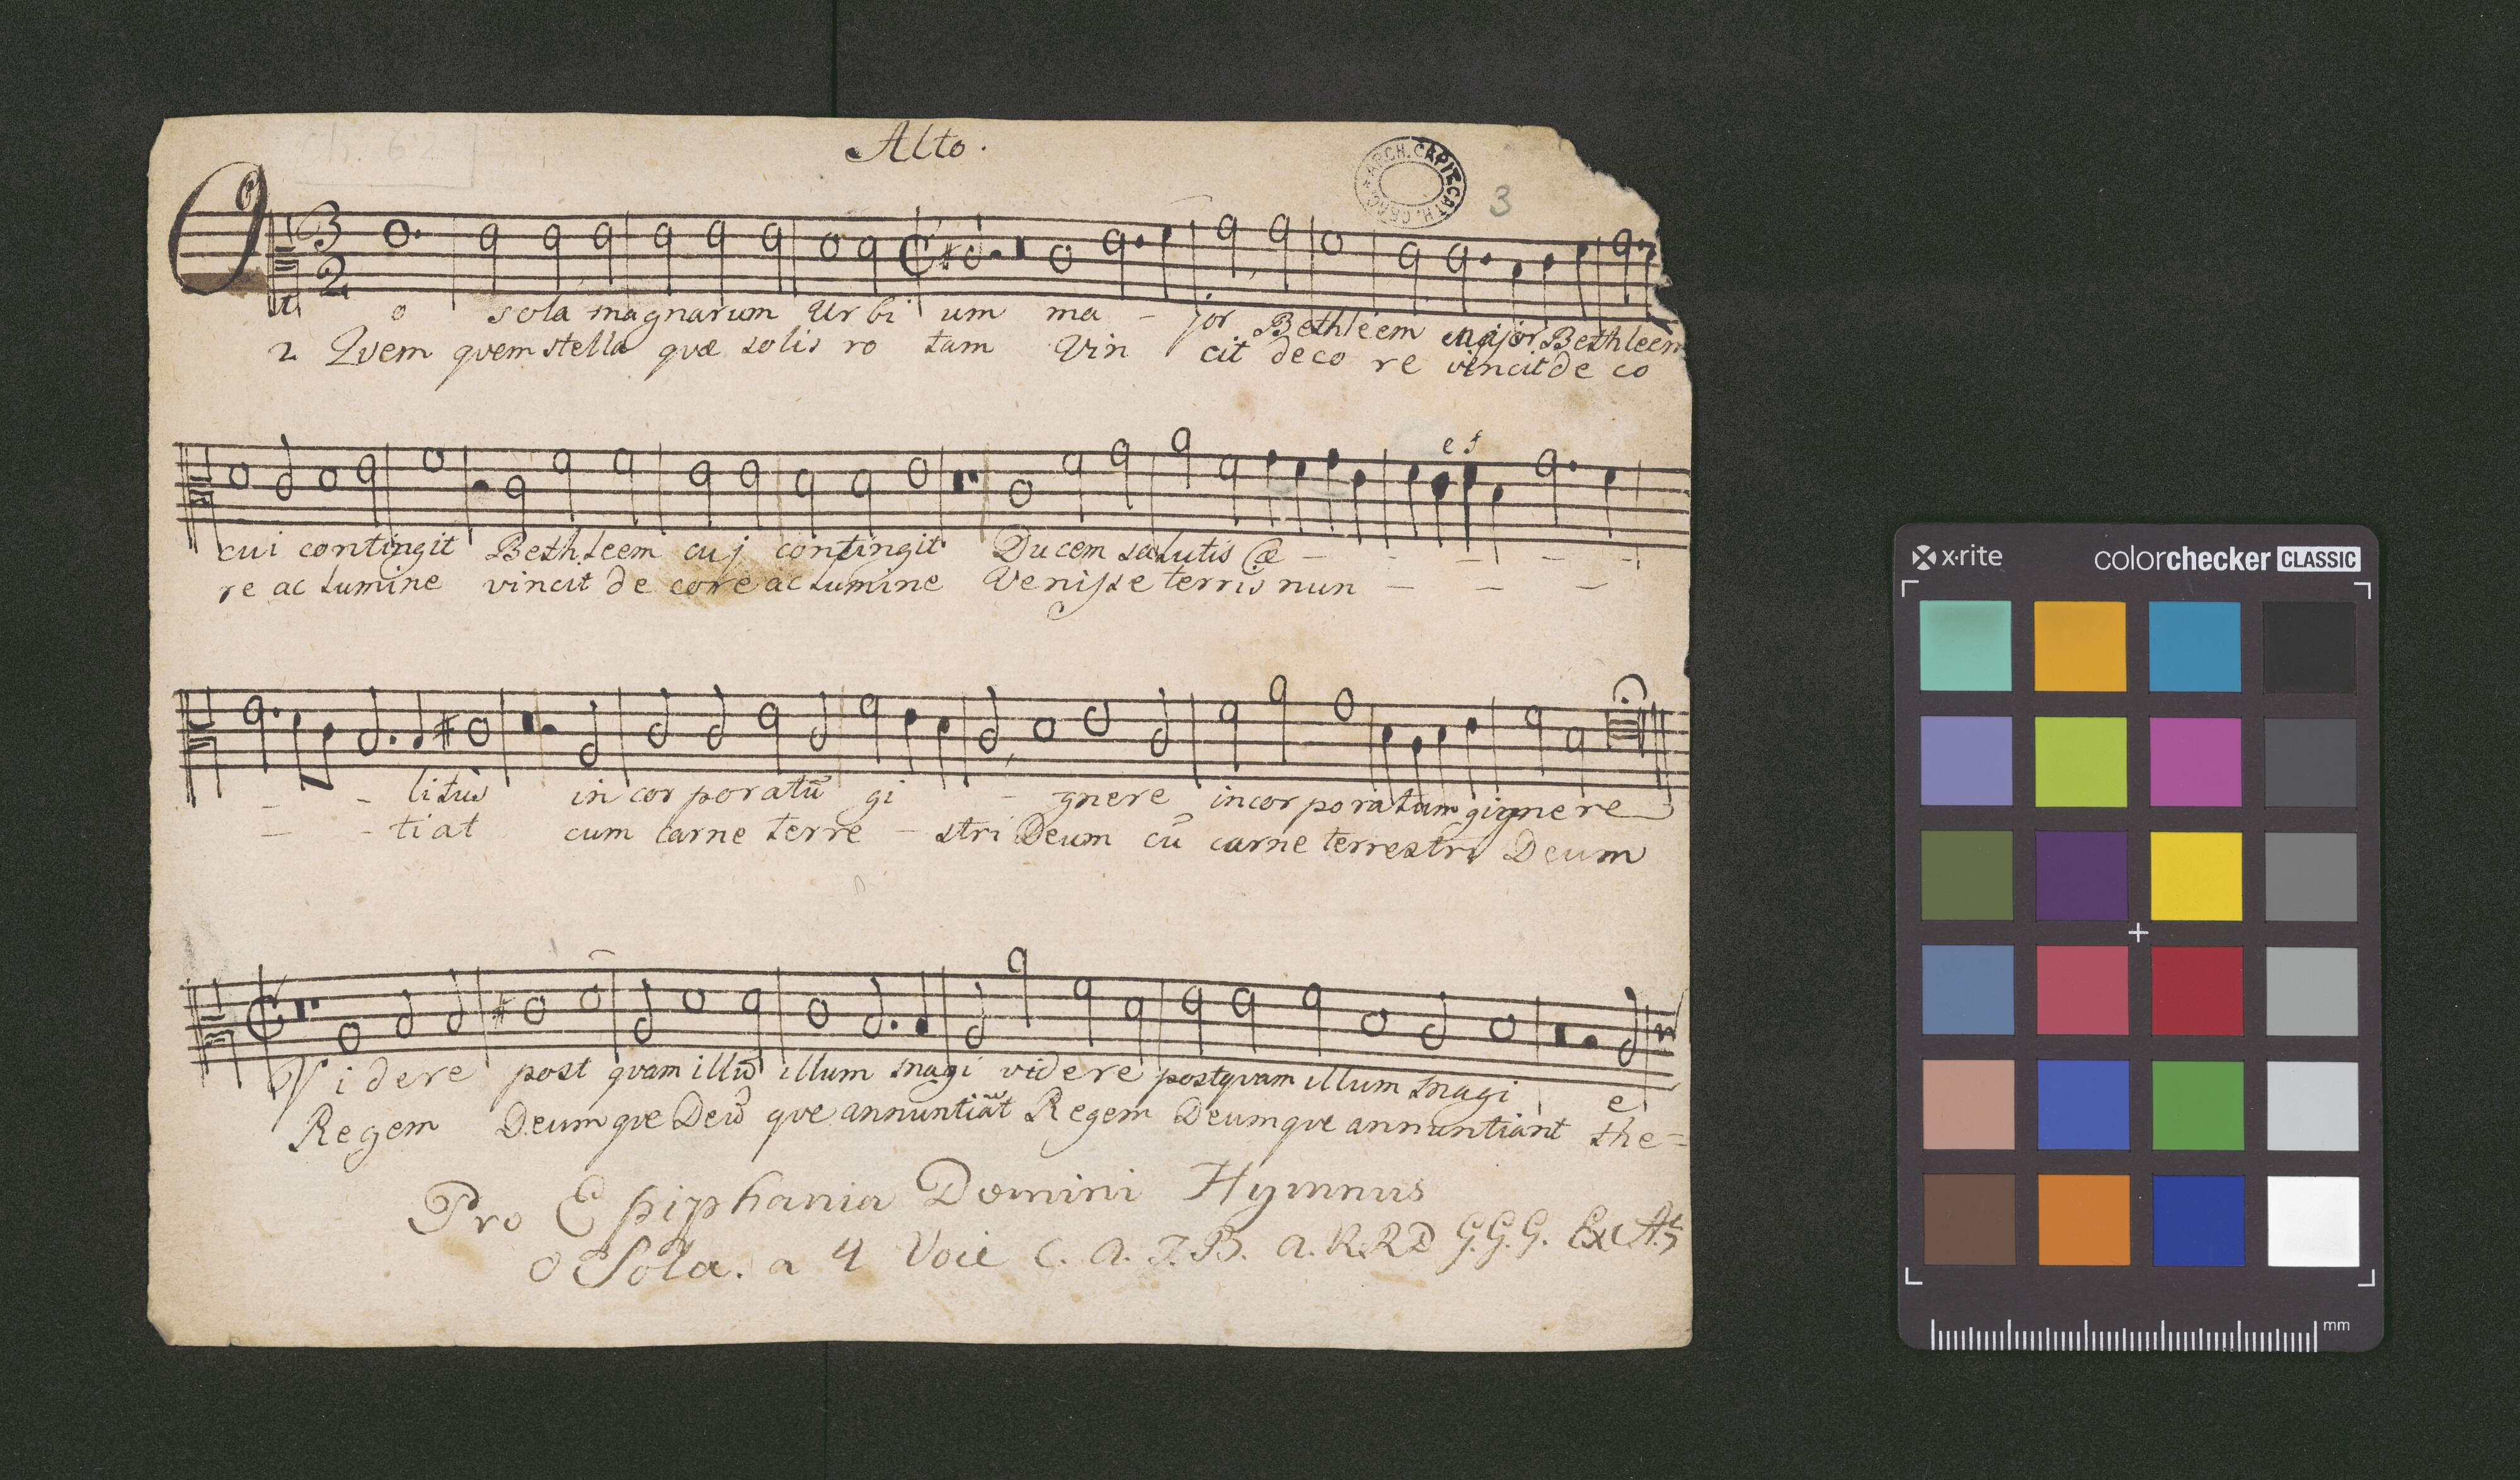 Alto.
ARCH. CAPIT. CATH. CRAC.
3
3
2
O sola magnarum Urbi um ma - jor Bethleem Major Bethleem
2 Qvem qvem stella qvæ solis ro tam Vin cit deco re vincit de co
e f
cui contingit Bethleem cuj contingit Ducem salutis Cæ - - - - -
re ac lumine vincit de core ac lumine Venisse terris nun - - -
- - litus in cor poratū gi - gnere incor poratum gignere
- - tiat cum carne terre - stri Deum cū carne terrestri Deum
Videre post qvam illū illum magi videre postqvam illum magi e
Regem Deumqve Deū qve annuntiāt Regem Deumqve annuntiant the=
Pro Epiphania Domini Hymnus
O Sola. a 4 Voie C. A. T. B. a. R.R.D G.G.G.
x·rite
colorchecker CLASSIC
mm